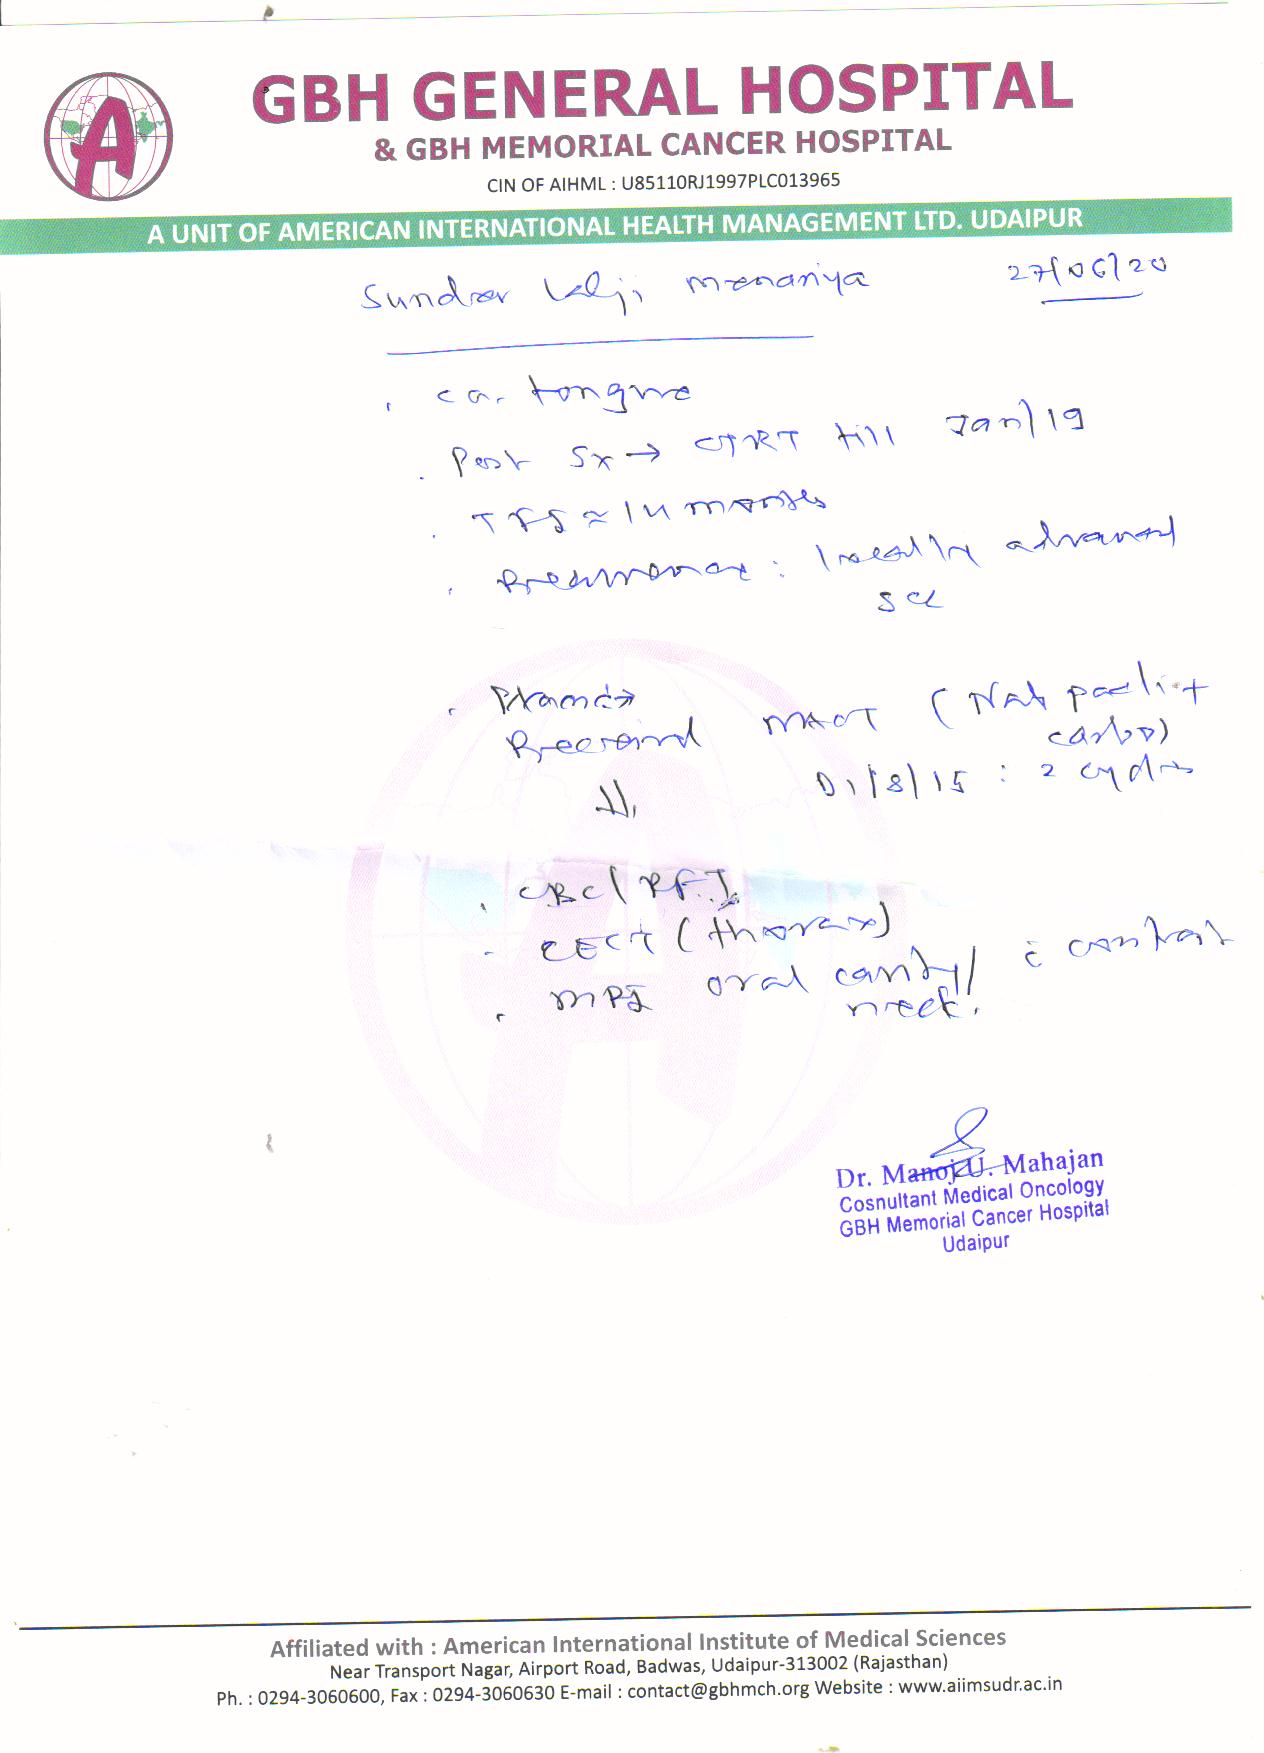 GBH GENERAL HOSPITAL
& GBH MEMORIAL CANCER HOSPITAL
CIN OF AIHML : U85110RJ1997PLC013965
A UNIT OF AMERICAN INTERNATIONAL HEALTH MANAGEMENT LTD. UDAIPUR
27/06/20
Sundar Lalji Menariya
ca. tongue
Post Sx → CTRT till Jan/19
TFS ≈ 14 months
Recurrence : locally advanced
SCC
Planned →
Received NACT (Nab pacli +
carbo)
D1/8/15 : 2 cycles
CBC/RFT
CECT (thorax)
MRI oral cavity/ c̄ contrast
neck.
Dr. Manoj U. Mahajan
Cosnultant Medical Oncology
GBH Memorial Cancer Hospital
Udaipur
Affiliated with : American International Institute of Medical Sciences
Near Transport Nagar, Airport Road, Badwas, Udaipur-313002 (Rajasthan)
Ph. : 0294-3060600, Fax : 0294-3060630 E-mail : contact@gbhmch.org Website : www.aiimsudr.ac.in